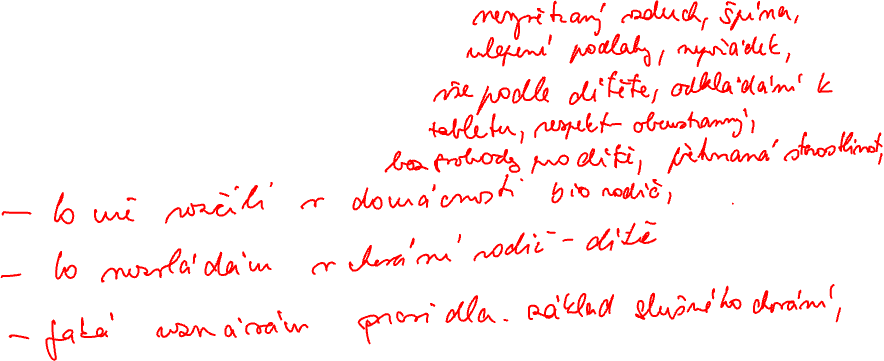 nevyvětraný vzduch, špína,
ulepené podlahy, nepořádek,
vše podle dítěte, odkládání k
tabletu, respekt oboustranný,
bez pohody pro dítě, přehnaná starostlivost,
– Co mě rozčílí v domácnosti bio rodič,
– Co nezvládám v chování rodič – dítě
– Jaká uznávám pravidla. základ slušného chování,